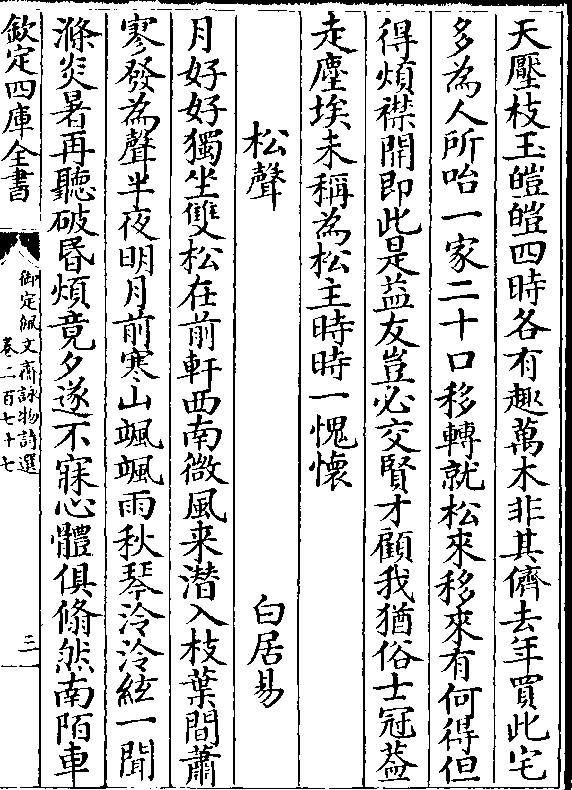 天壓枝玉皚皚四時各有趣萬木非其儕去年買此宅
多為人所咍一家二十口移轉就松來移來有何得但
得煩襟開即此是益友豈必交賢才顧我猶俗士冠葢
走塵埃未稱為松主時時一愧懷
松聲 白居易
月好好獨坐雙松在前軒西南微風来潜入枝葉間蕭
寥發為聲半夜明月前寒山颯颯雨秋琴泠泠絃一聞
滌炎暑再聽破昬煩竟夕遂不寐心體俱翛然南陌車
欽定四庫全書
御定佩文齋詠物詩選
卷二百七十七
三